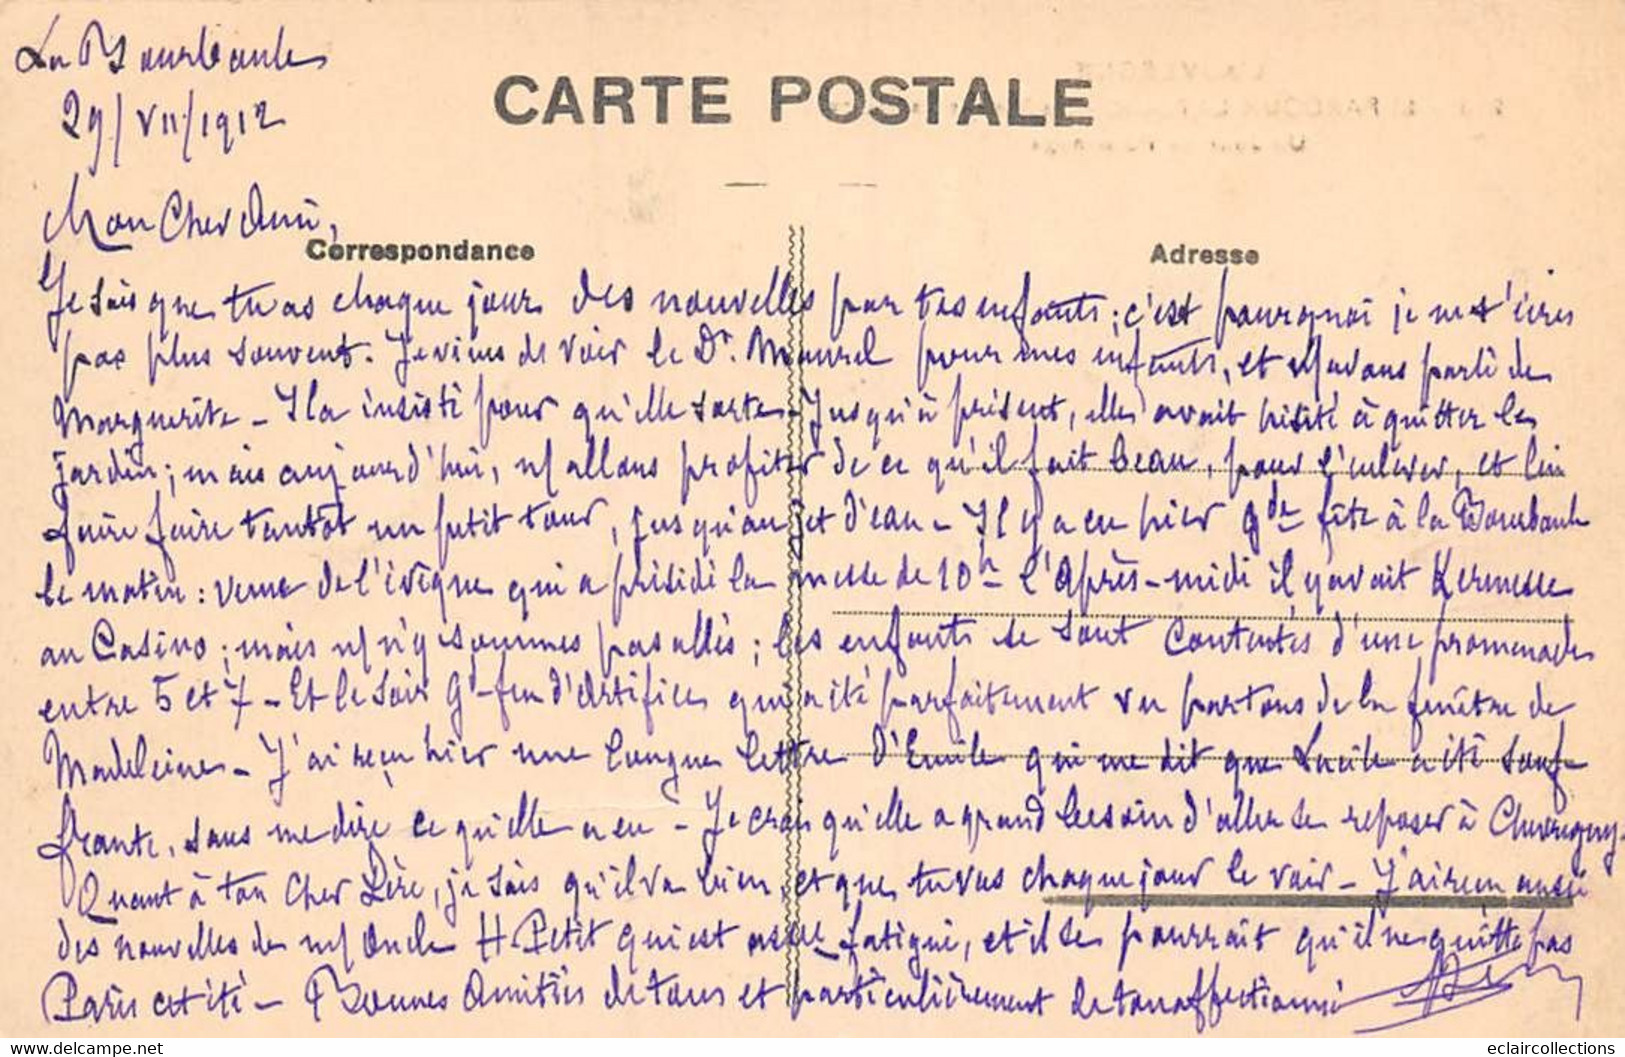 La Bourboule
29/VII/1912
CARTE POSTALE
Mon Cher Ami,
Correspondance
Adresse
Je sais que tu as chaque jour des nouvelles par tes enfants ; c'est pourquoi je ne t'écris
pas plus souvent. Je viens de voir le Dr. Maurel pour mes enfants, et ns avons parlé de
Marguerite - Il a insisté pour qu'elle sorte - Jusqu'à présent, elle avait hésité à quitter le
jardin ; mais aujourd'hui, ns allons profiter de ce qu'il fait beau, pour l'enlever, et lui
faire faire tantôt un petit tour, jusqu'au jet d'eau - Il y a eu hier gde fête à la Bourboule
le matin : venue de l'évêque qui a présidé la messe de 10h l'Après-midi il y avait Kermesse
au Casino ; mais ns n'y sommes pas allés ; les enfants se sont contentés d'une promenade
entre 5 et 7 - Et le soir gd feu d'Artifice qui a été parfaitement vu par tous de la fenêtre de
Madeleine - J'ai reçu hier une longue lettre d'Emile qui me dit que Lucile a été souf-
frante, sans me dire ce qu'elle a eu - Je crois qu'elle a grand besoin d'aller se reposer à Chevregny -
Quant à ton cher Père, je sais qu'il va bien, et que tu vas chaque jour le voir - J'ai reçu aussi
des nouvelles de mon Oncle H Petit qui est assez fatigué, et il se pourrait qu'il ne quitte pas
Paris cet été - Bonnes Amitiés de tous et particulièrement de ton affectionné
delcampe.net
eclaircollections